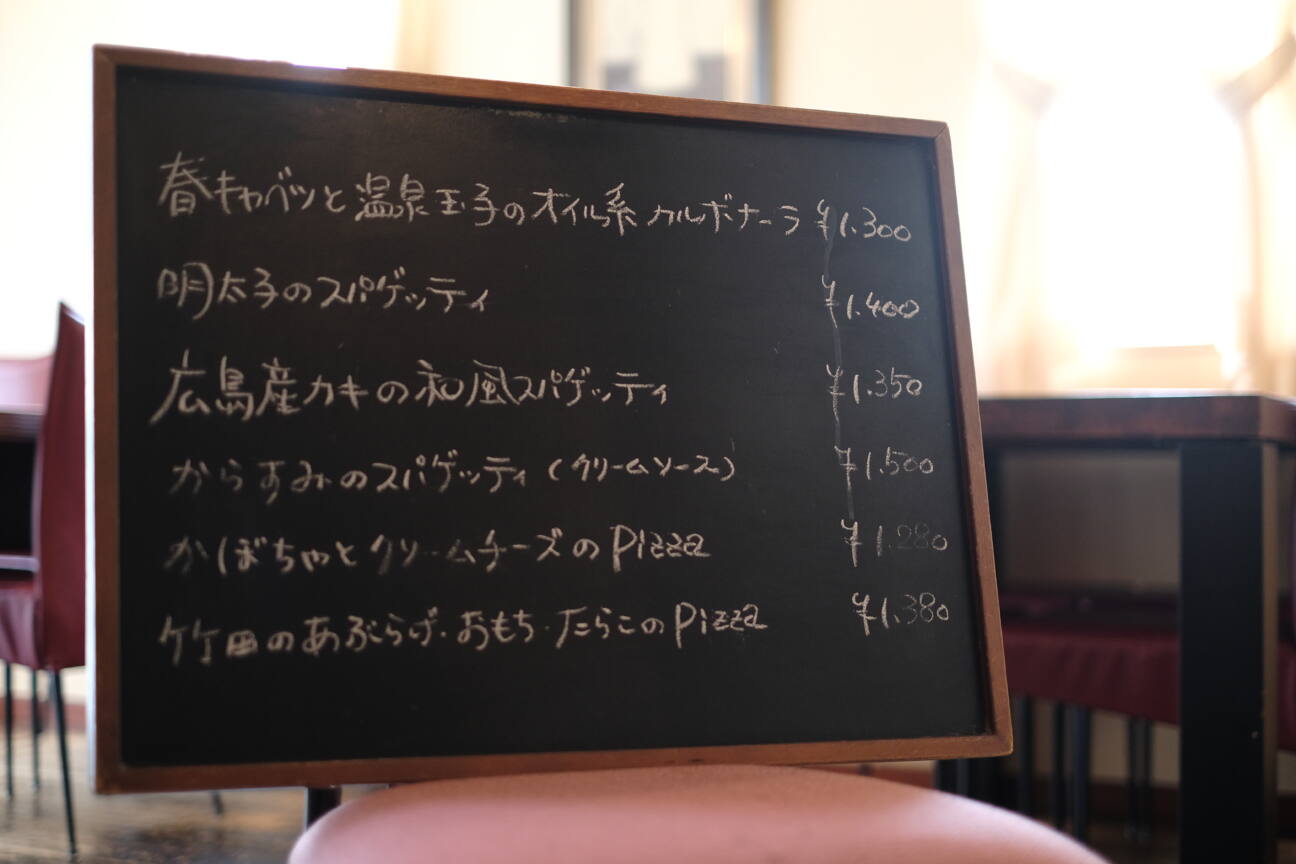 春キャベツと温泉玉子のオイル系カルボナーラ ¥1.300
明太子のスパゲッティ ¥1.400
広島産カキの和風スパゲッティ ¥1.350
からすみのスパゲッティ(クリームソース) ¥1.500
かぼちゃとクリームチーズのPizza ¥1.280
竹田のあぶらげ・おもち・たらこのPizza ¥1.380